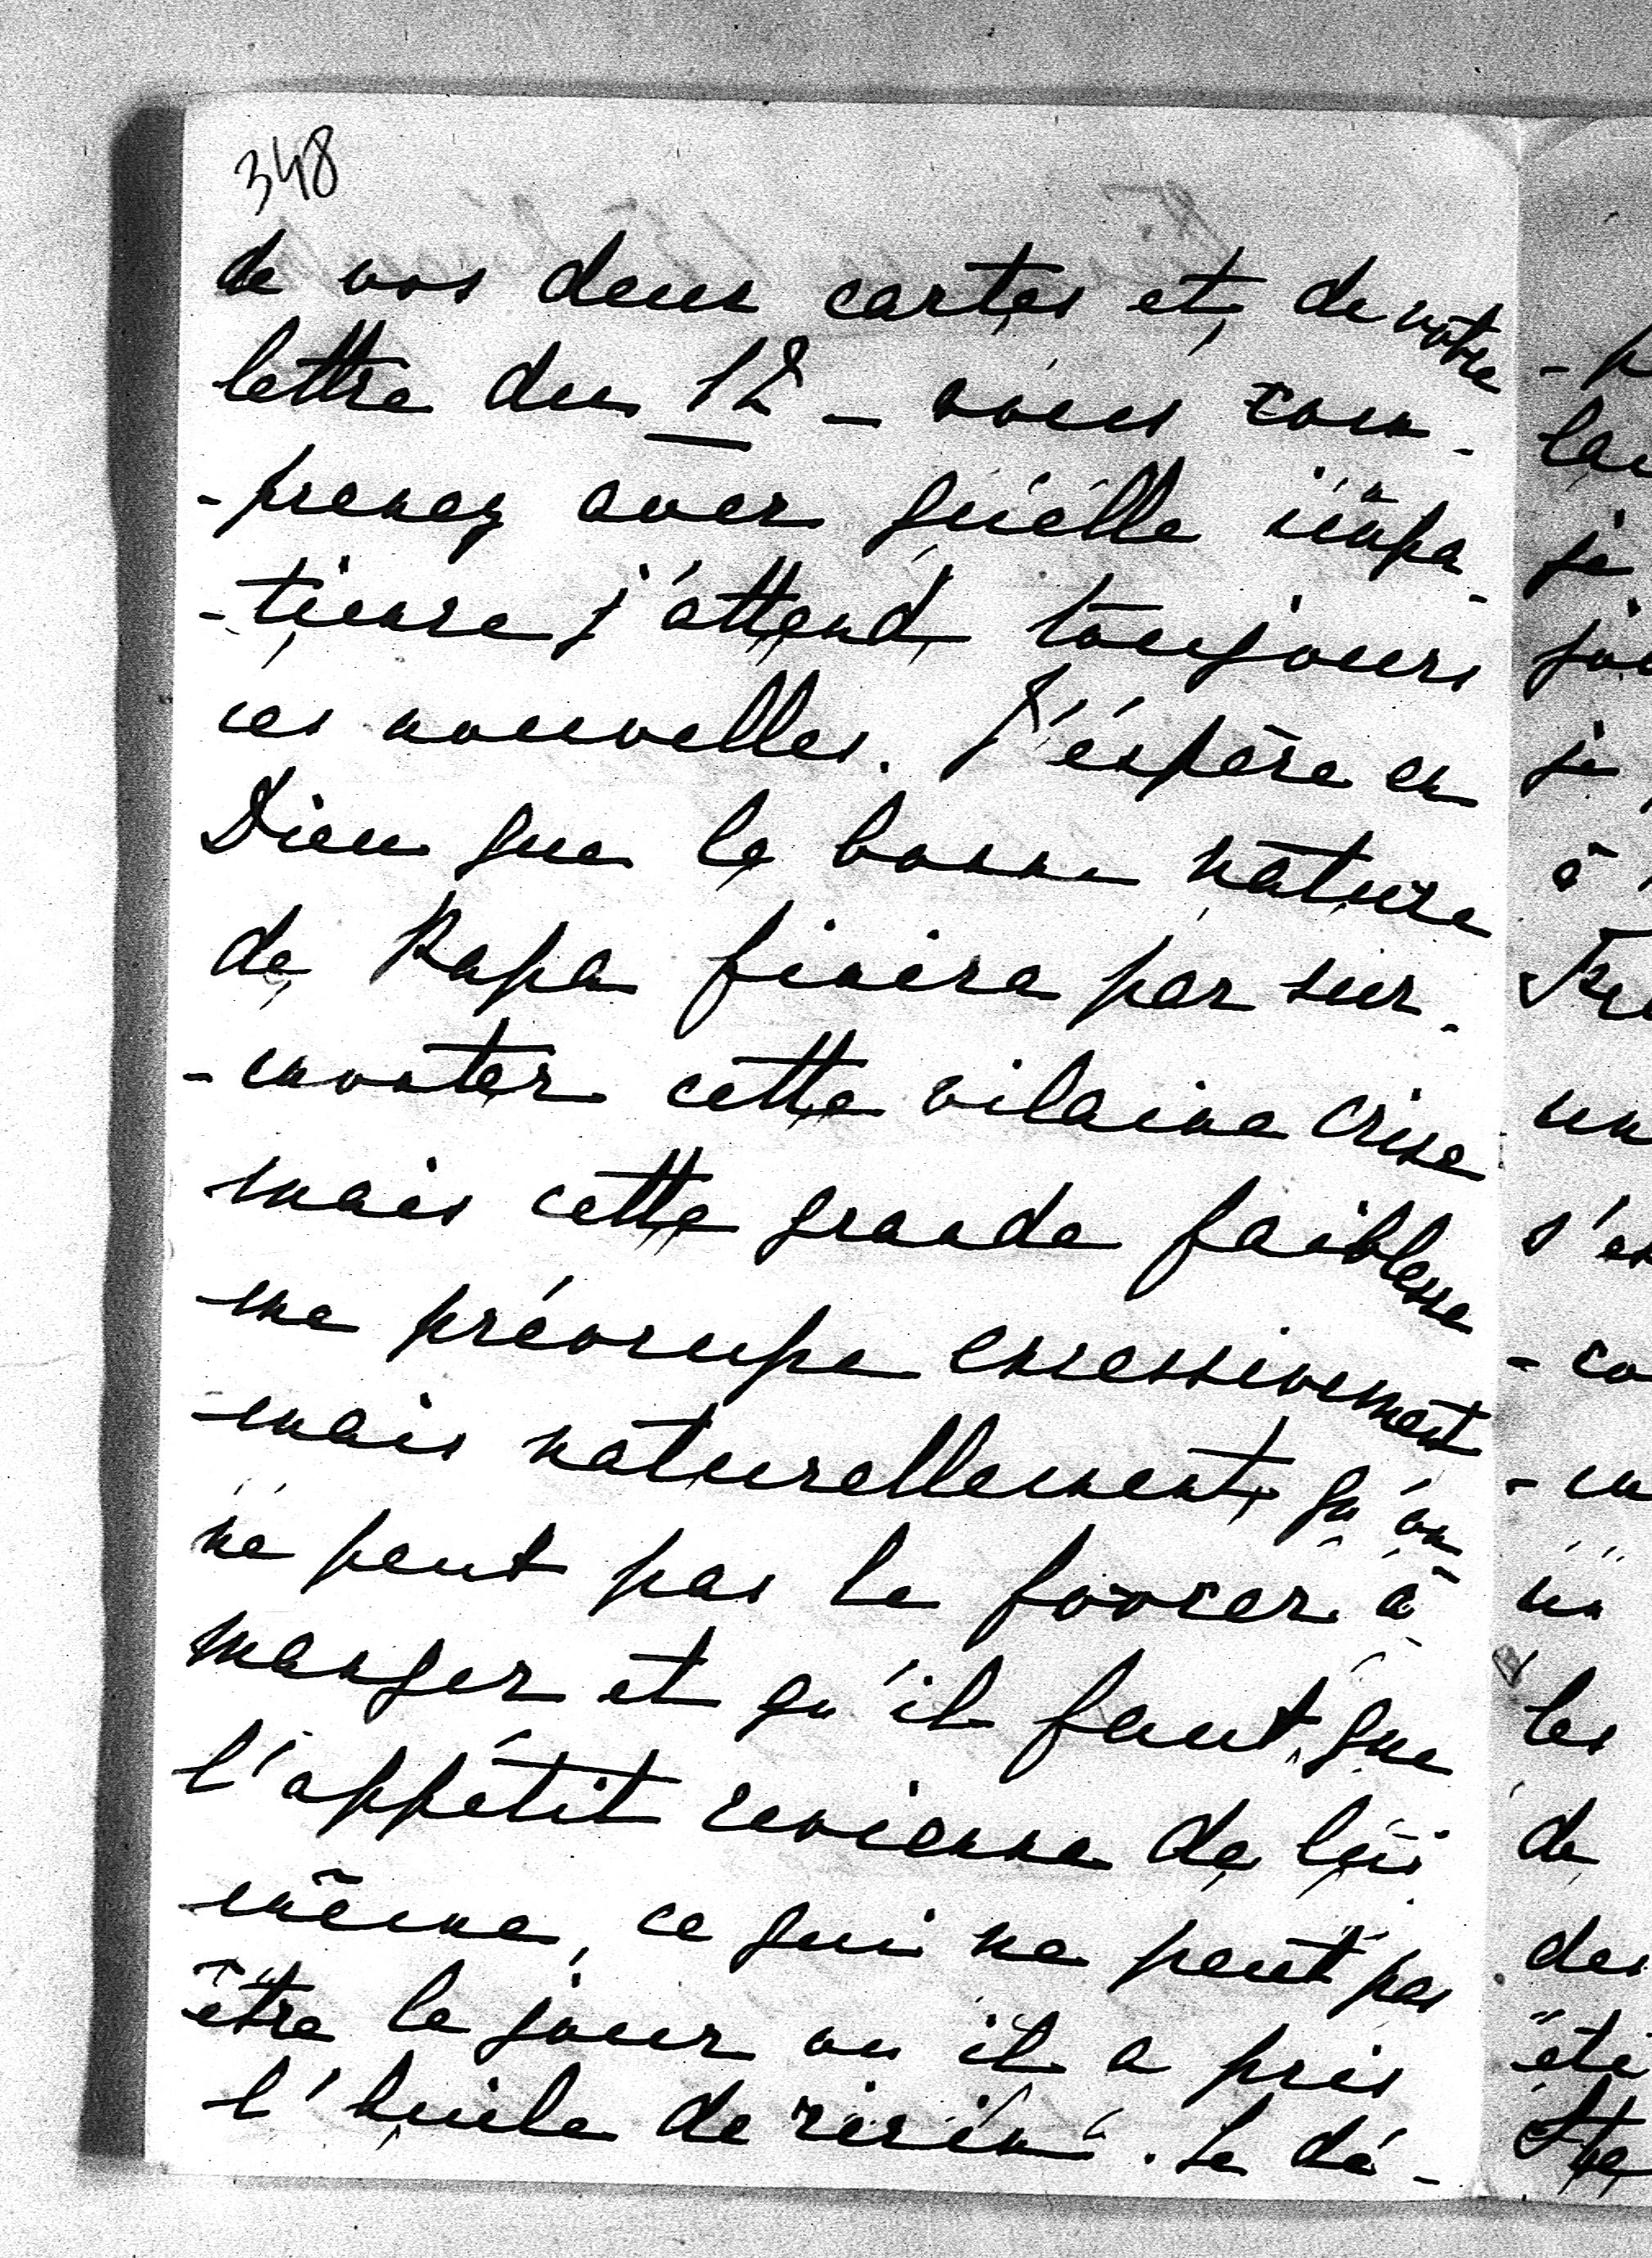 348
de vos deux cartes et de votre
lettre du 12 - vous com-
-prenez avec quelle impa-
-tience j'attend toujours
ces nouvelles. J'éspère en
Dieu que la bonne nature
de Papa finira par sur-
-monter cette vilaine crise
mais cette grande faiblesse
me préocupe excessivement
mais naturellement qu'on
ne peut pas le forcer à
manger et qu'il faut que
l'appétit revienne de lui
même, ce qui ne peut pas
être le jour ou il a pris
l'huile de ricin. Le dé-